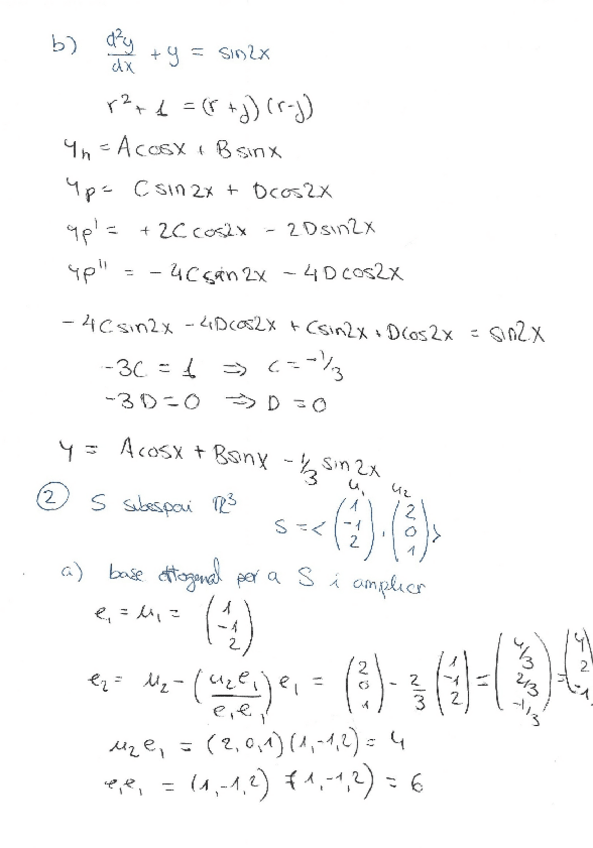 b) d²y/dx + y = sin2x
r² + 1 = (r+j)(r-j)
yh = Acosx + Bsinx
yp = Csin2x + Dcos2x
yp' = +2Ccos2x - 2Dsin2x
yp'' = -4Csin2x - 4Dcos2x
-4Csin2x - 4Dcos2x + Csin2x + Dcos2x = sin2x
-3C = 1 => C = -1/3
-3D = 0 => D = 0
y = Acosx + Bsinx - 1/3 sin2x
② S subespai ℝ³ S = < u₁ (1 -1 2), u₂ (2 0 1) >
a) base ottogenal per a S i ampliar
e₁ = u₁ = (1 -1 2)
e₂ = u₂ - (u₂e₁/e₁e₁) e₁ = (2 0 1) - 2/3 (1 -1 2) = (4/3 2/3 -1/3) = (4 2 -1)
u₂e₁ = (2,0,1)(1,-1,2) = 4
e₁e₁ = (1,-1,2)(1,-1,2) = 6